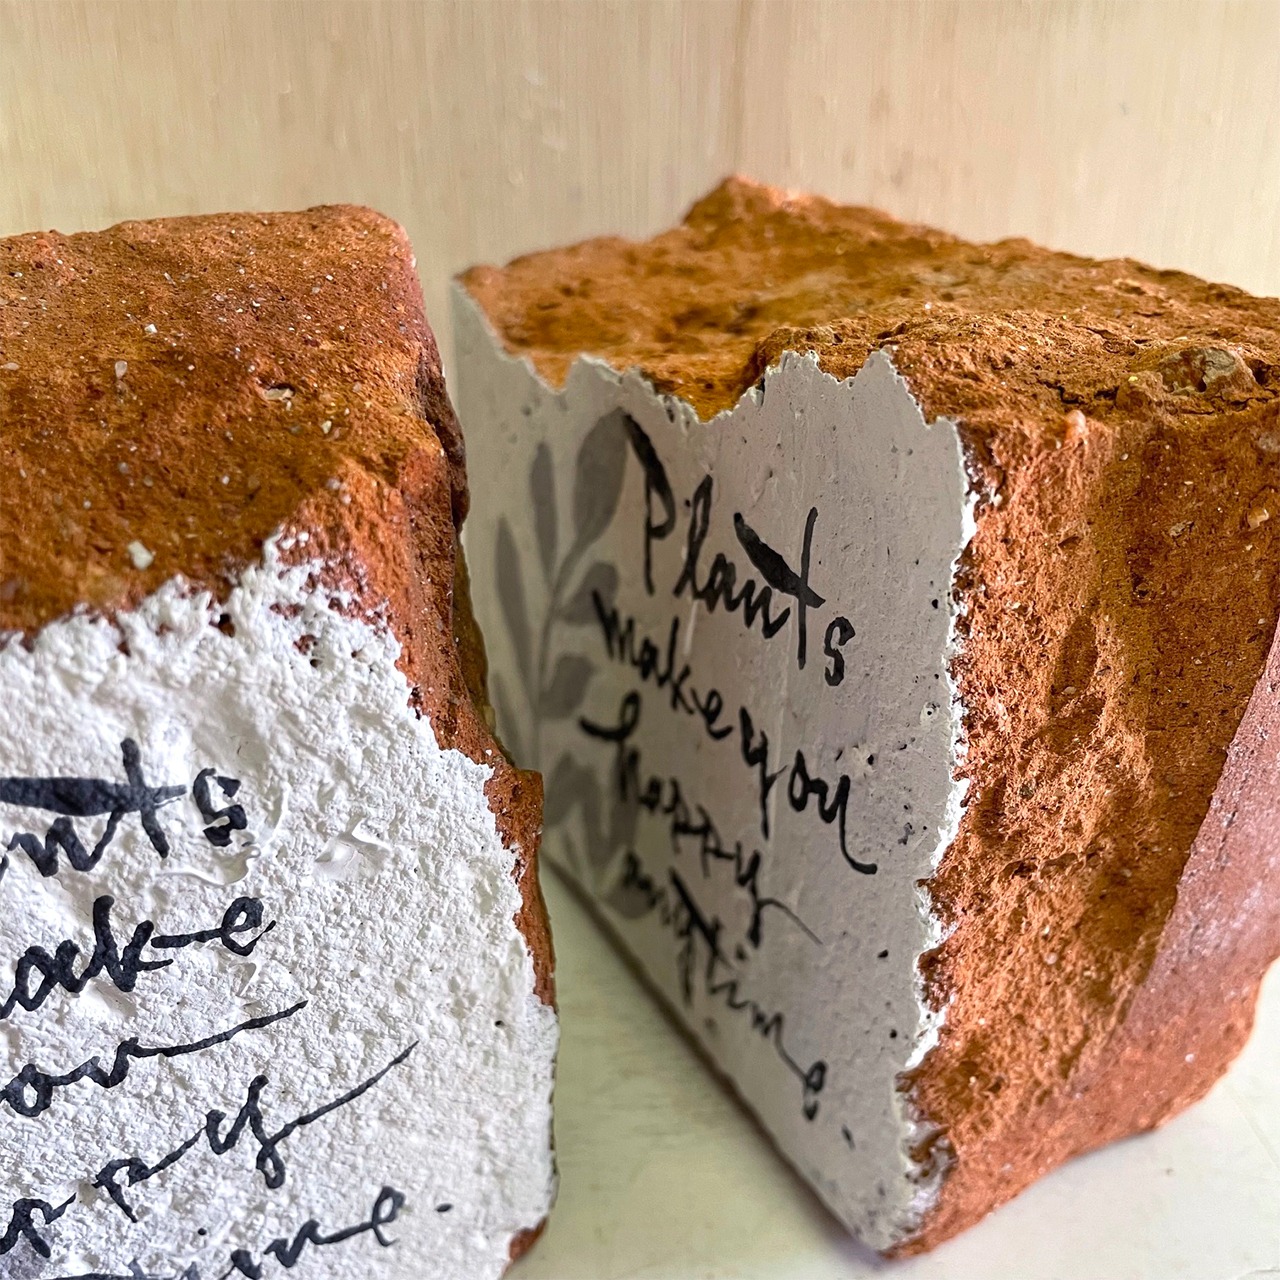 nts
ake
ou
ppy
time.
Plants
make you
happy
anytime.